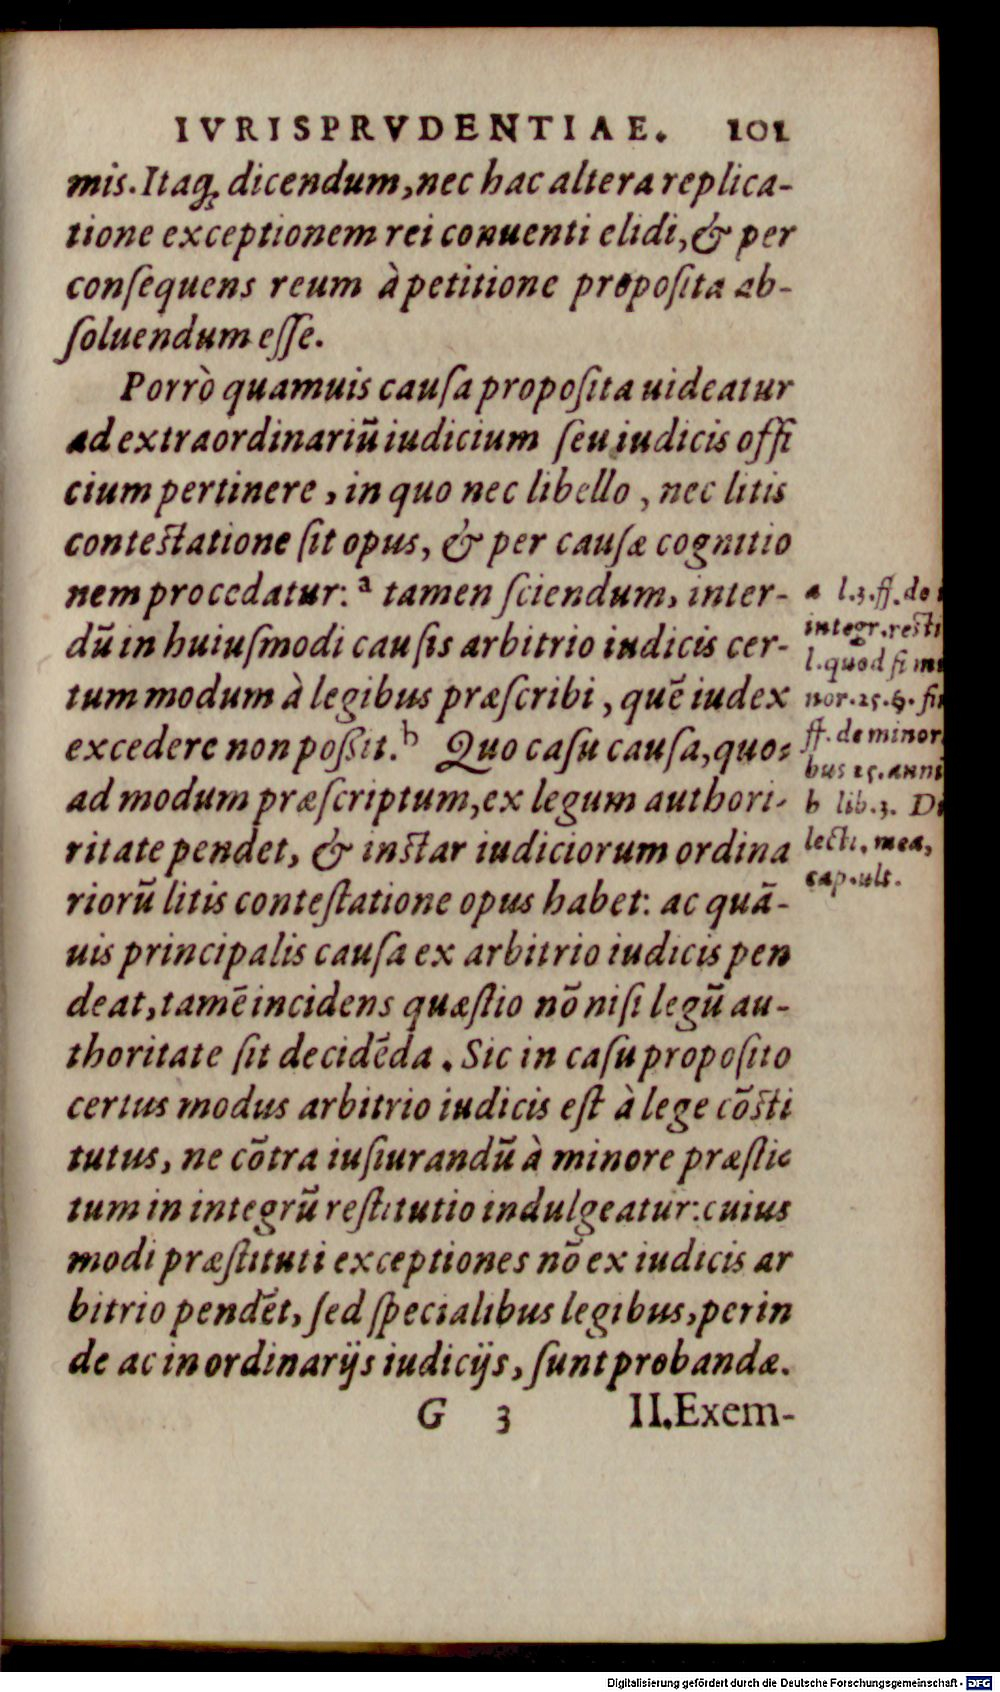 IVRISPRVDENTIAE. 101
mis. Itaq; dicendum, nec hac altera replica-
tione exceptionem rei conuenti elidi, & per
conſequens reum à petitione propoſita ab-
ſoluendum eſſe.
Porrò quamuis cauſa propoſita uideatur
ad extraordinariũ iudicium ſeu iudicis offi
cium pertinere, in quo nec libello, nec litis
conteſtatione ſit opus, & per cauſæ cognitio
nem procedatur: a tamen ſciendum, inter-
dũ in huiuſmodi cauſis arbitrio iudicis cer-
tum modum à legibus præſcribi, quẽ iudex
excedere non poßit. b Quo caſu cauſa, quo-
ad modum præſcriptum, ex legum authori-
ritate pendet, & inſtar iudiciorum ordina
riorũ litis conteſtatione opus habet: ac quã-
uis principalis cauſa ex arbitrio iudicis pen
deat, tamẽ incidens quæſtio nõ niſi legũ au-
thoritate ſit decidẽda. Sic in caſu propoſito
certus modus arbitrio iudicis eſt à lege cõſti
tutus, ne cõtra iuſiurandũ à minore præſti-
tum in integrũ reſtitutio indulgeatur: cuius
modi præſtituti exceptiones nõ ex iudicis ar
bitrio pendẽt, ſed ſpecialibus legibus, perin
de ac in ordinarijs iudicijs, ſunt probandæ.
a l.3.ff. de i
integr. reſti
l. quod ſi mi
nor. 25. §. fi
ff. de minor
bus 25. anni
b lib.3. Di
lecti. mea,
cap. ult.
G 3 II. Exem-
Digitalisierung gefördert durch die Deutsche Forschungsgemeinschaft - DFG